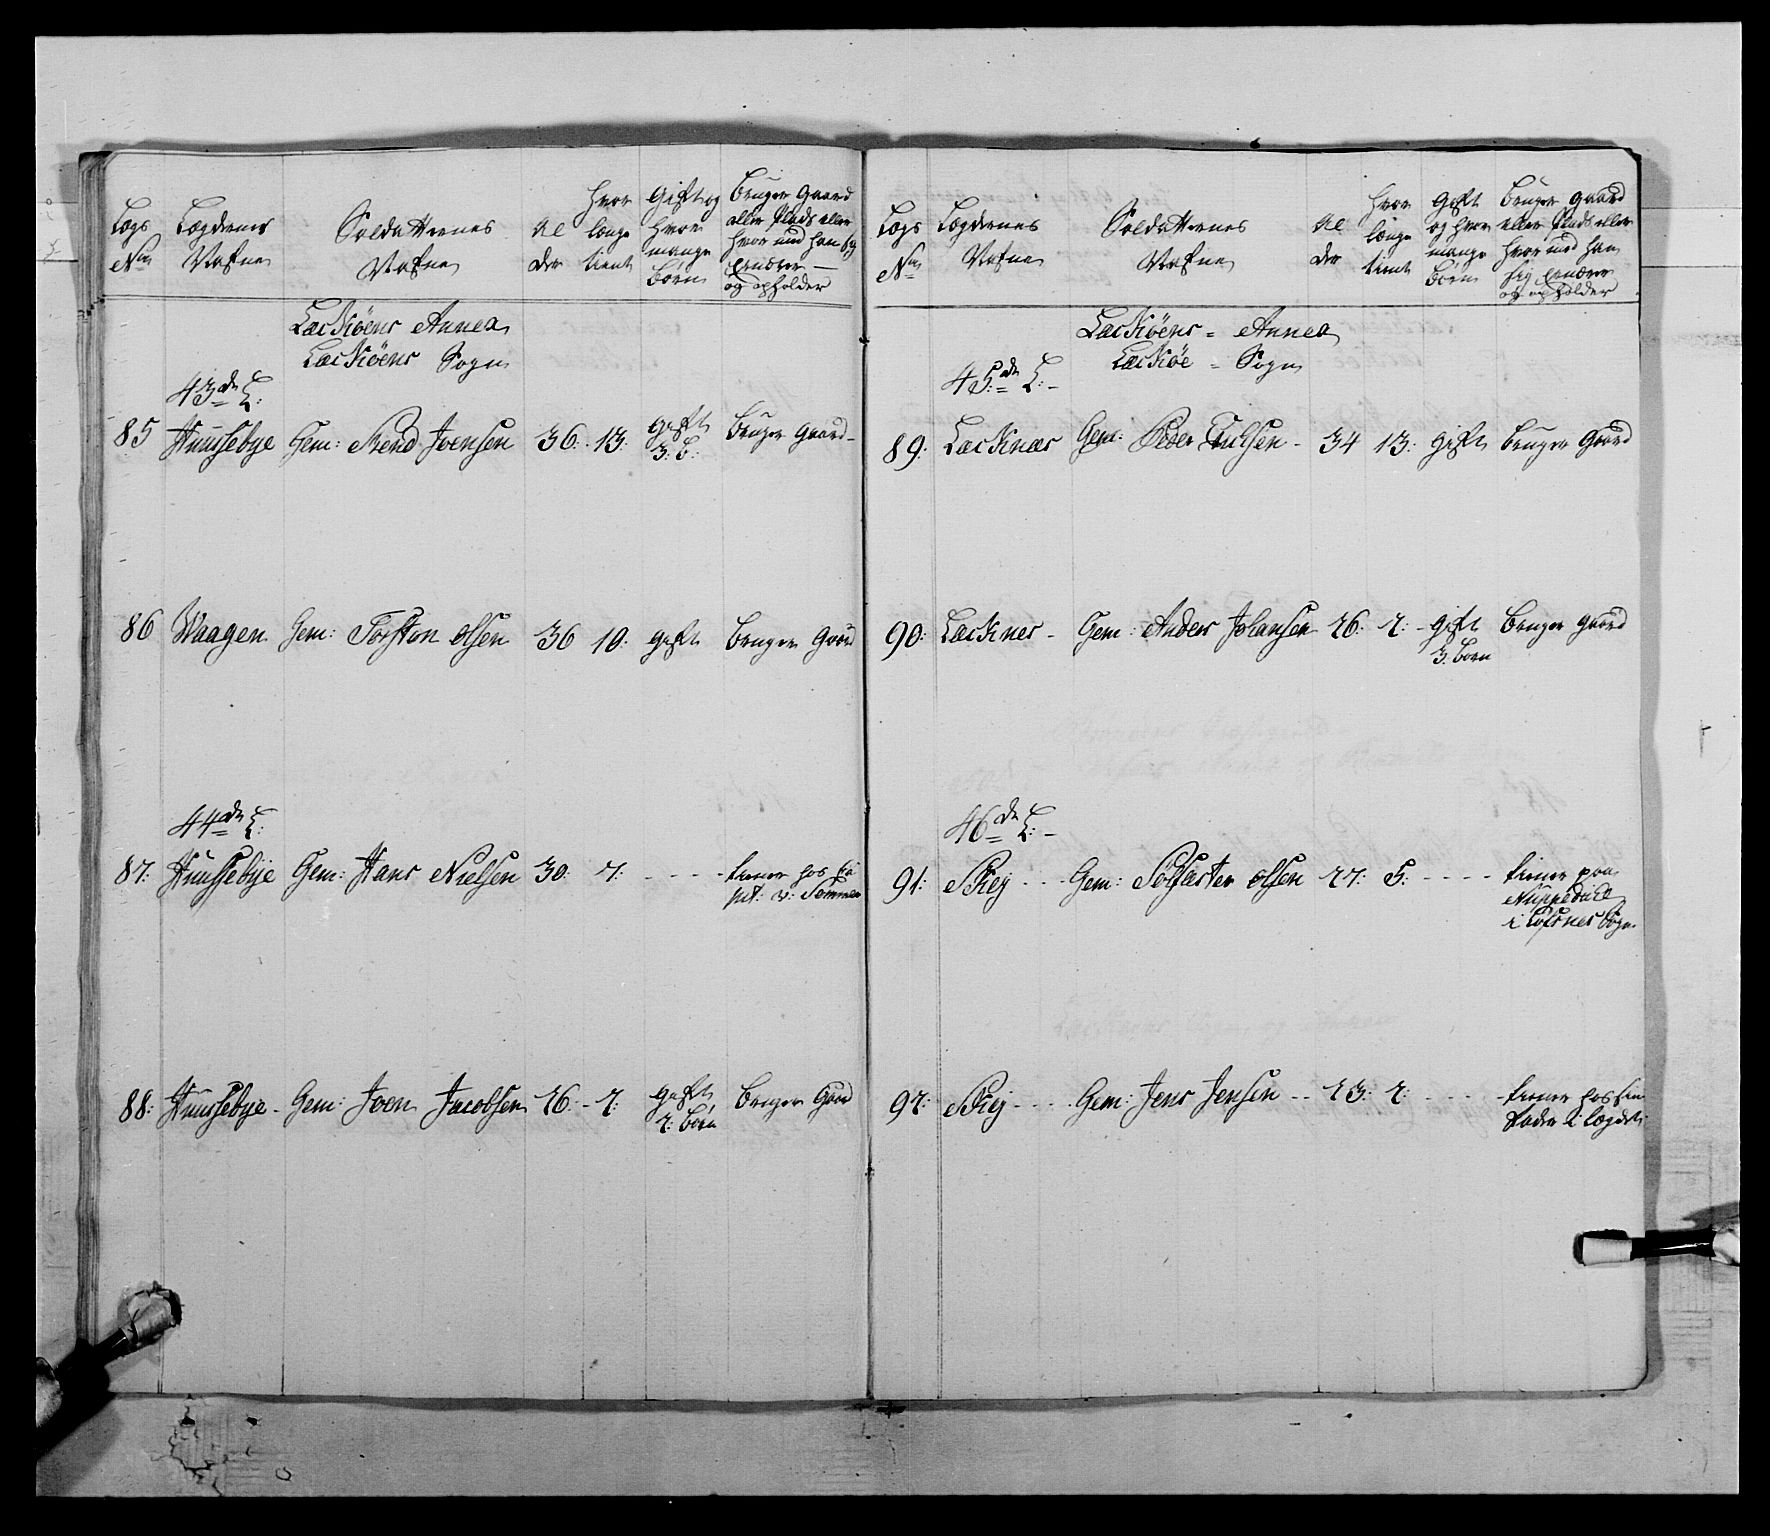 Legs No
Legdernes Nafne
Soldatternes Nafne
Al der
hvor længe tient
Gift og hvor mange børn
Bruger Gaard eller Plads eller hvor med han sig ernærer og opholder
Lackiøens Annex
Lackiøens Sogn
43de L:
85 Huussebye Gem: Svend Joensen 36: 13: gift 3: b: bruger Gaard
86 Waagen Gem: Torsten Olsen 36 10: gift bruger Gaard
44de L:
87: Huussebye Gem: Hans Nielsen 30: 7: - - - tiener hos Ca
pit: v: Temmen
88: Huussebye - Gem: Joen Jacobsen 26 - 2: gift 2: børn bruger Gaard
Legs No
Legdernes Nafne
Soldatternes Nafne
Al der
hvor længe tient
Gift og hvor mange børn
Bruger Gaard eller Plads eller hvor med han sig ernærer og opholder
Lackiøens = Annex
Lackiøe = Sogn
45de L: -
89: Lacknæs Gem: Peder - 34 13: gift bruger Gaard
90: Lacknes - Gem: Anders Johansen 26: 2: - gift 3. børn bruger Gaard
46de L: -
91: Skej - - - Gem: Olsen 27: 5: - - - - tiener paa
i Lofsnes Sogn
92: Skej - - - Gem: Jens Jensen - - 23: 2: - - - - tiener hos sin
Fader i Legdet